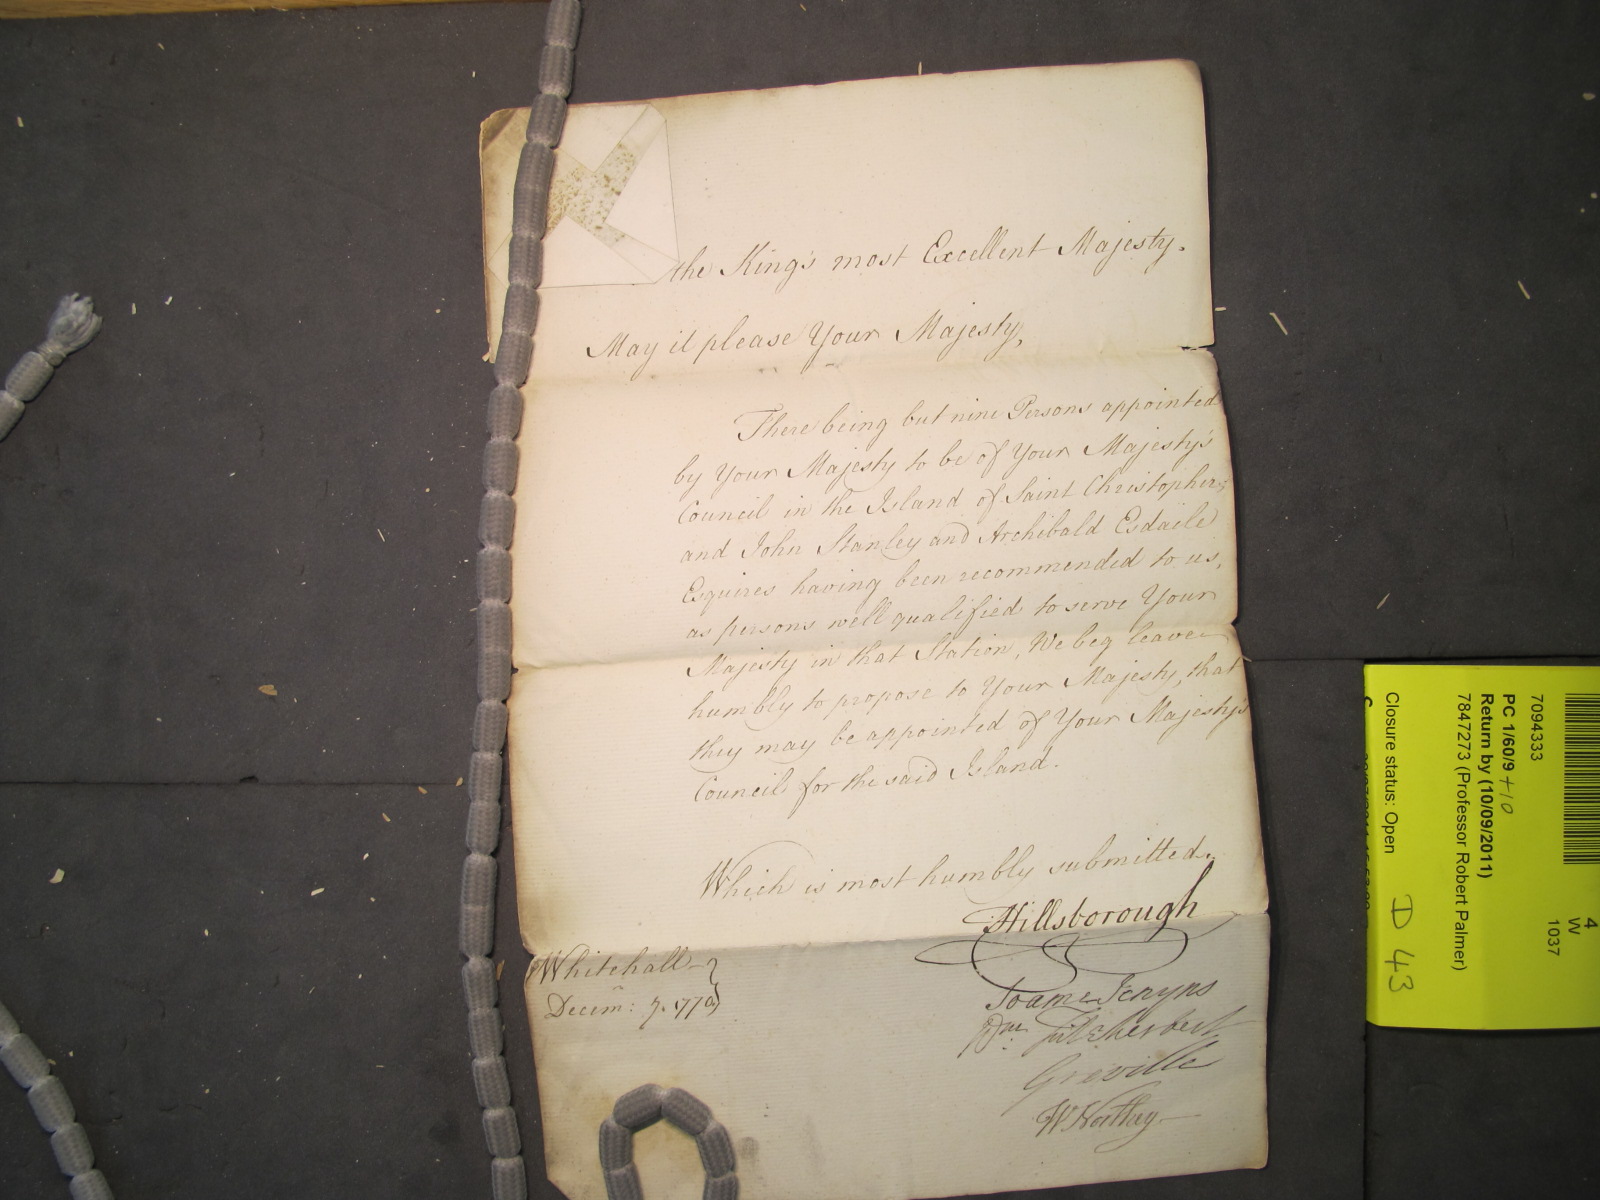 the King's most Excellent Majesty.
May it please Your Majesty,
There being but nine Persons appointed
by Your Majesty to be of Your Majesty's
Council in the Island of Saint Christopher;
and John Stanley and Archibald Esdaile
Esquires having been recommended to us,
as persons well qualified to serve Your
Majesty in that Station, We beg leave
humbly to propose to Your Majesty, that
they may be appointed of Your Majesty's
Council for the said Island.
Which is most humbly submitted.
Hillsborough
Soame Jenyns
Wm. Fitzherbert
Greville
Whitehall
Decem: 7. 1770
4
W
1037
7094333
PC 1/60/9 +10
Return by (10/09/2011)
7847273 (Professor Robert Palmer)
Closure status: Open
D 43